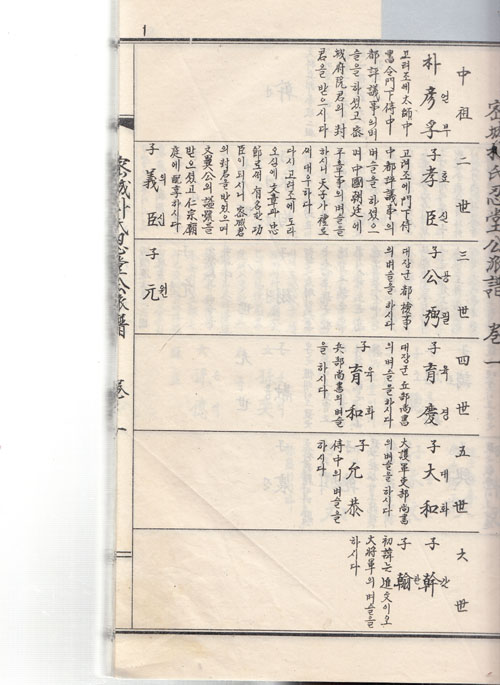 1
中祖
朴彦孚 언부
고려조에 太師中
書令門下侍中
都評議事의 벼
슬을 하셨고 密
城府院君의 封
君을 받으시다
二世
子 孝臣 효신
고려조에 門下侍
中都評議事의
벼슬을 하셨으
며 中國朝廷에
平章事의 벼슬을
하시니 天子가 禮로
써 대우하다
다시 고려조에 도라
오심에 文章과 忠
節로써 有名한 功
臣이 되시니 密城君
의 封君을 받았으며
文翼公의 諡號를
받으셨고 仁宗朝
庭에 配享하시다
子 義臣 의신
三世
子 公弼 공필
대장군 都檢事
의 벼슬을 하시다
子 元 원
四世
子 育慶 육경
대장군 兵部尚書
의 벼슬을 하시다
子 育和 육화
兵部尚書의 벼슬
을 하시다
五世
子 大和 대화
大護軍吏部尚書
의 벼슬을 하시다
子 允恭
侍中의 벼슬을
하시다
六世
子 幹 간
子 翰 한
初諱는 進文이오
大將軍의 벼슬을
하시다
密城朴氏忍堂公派譜 卷一